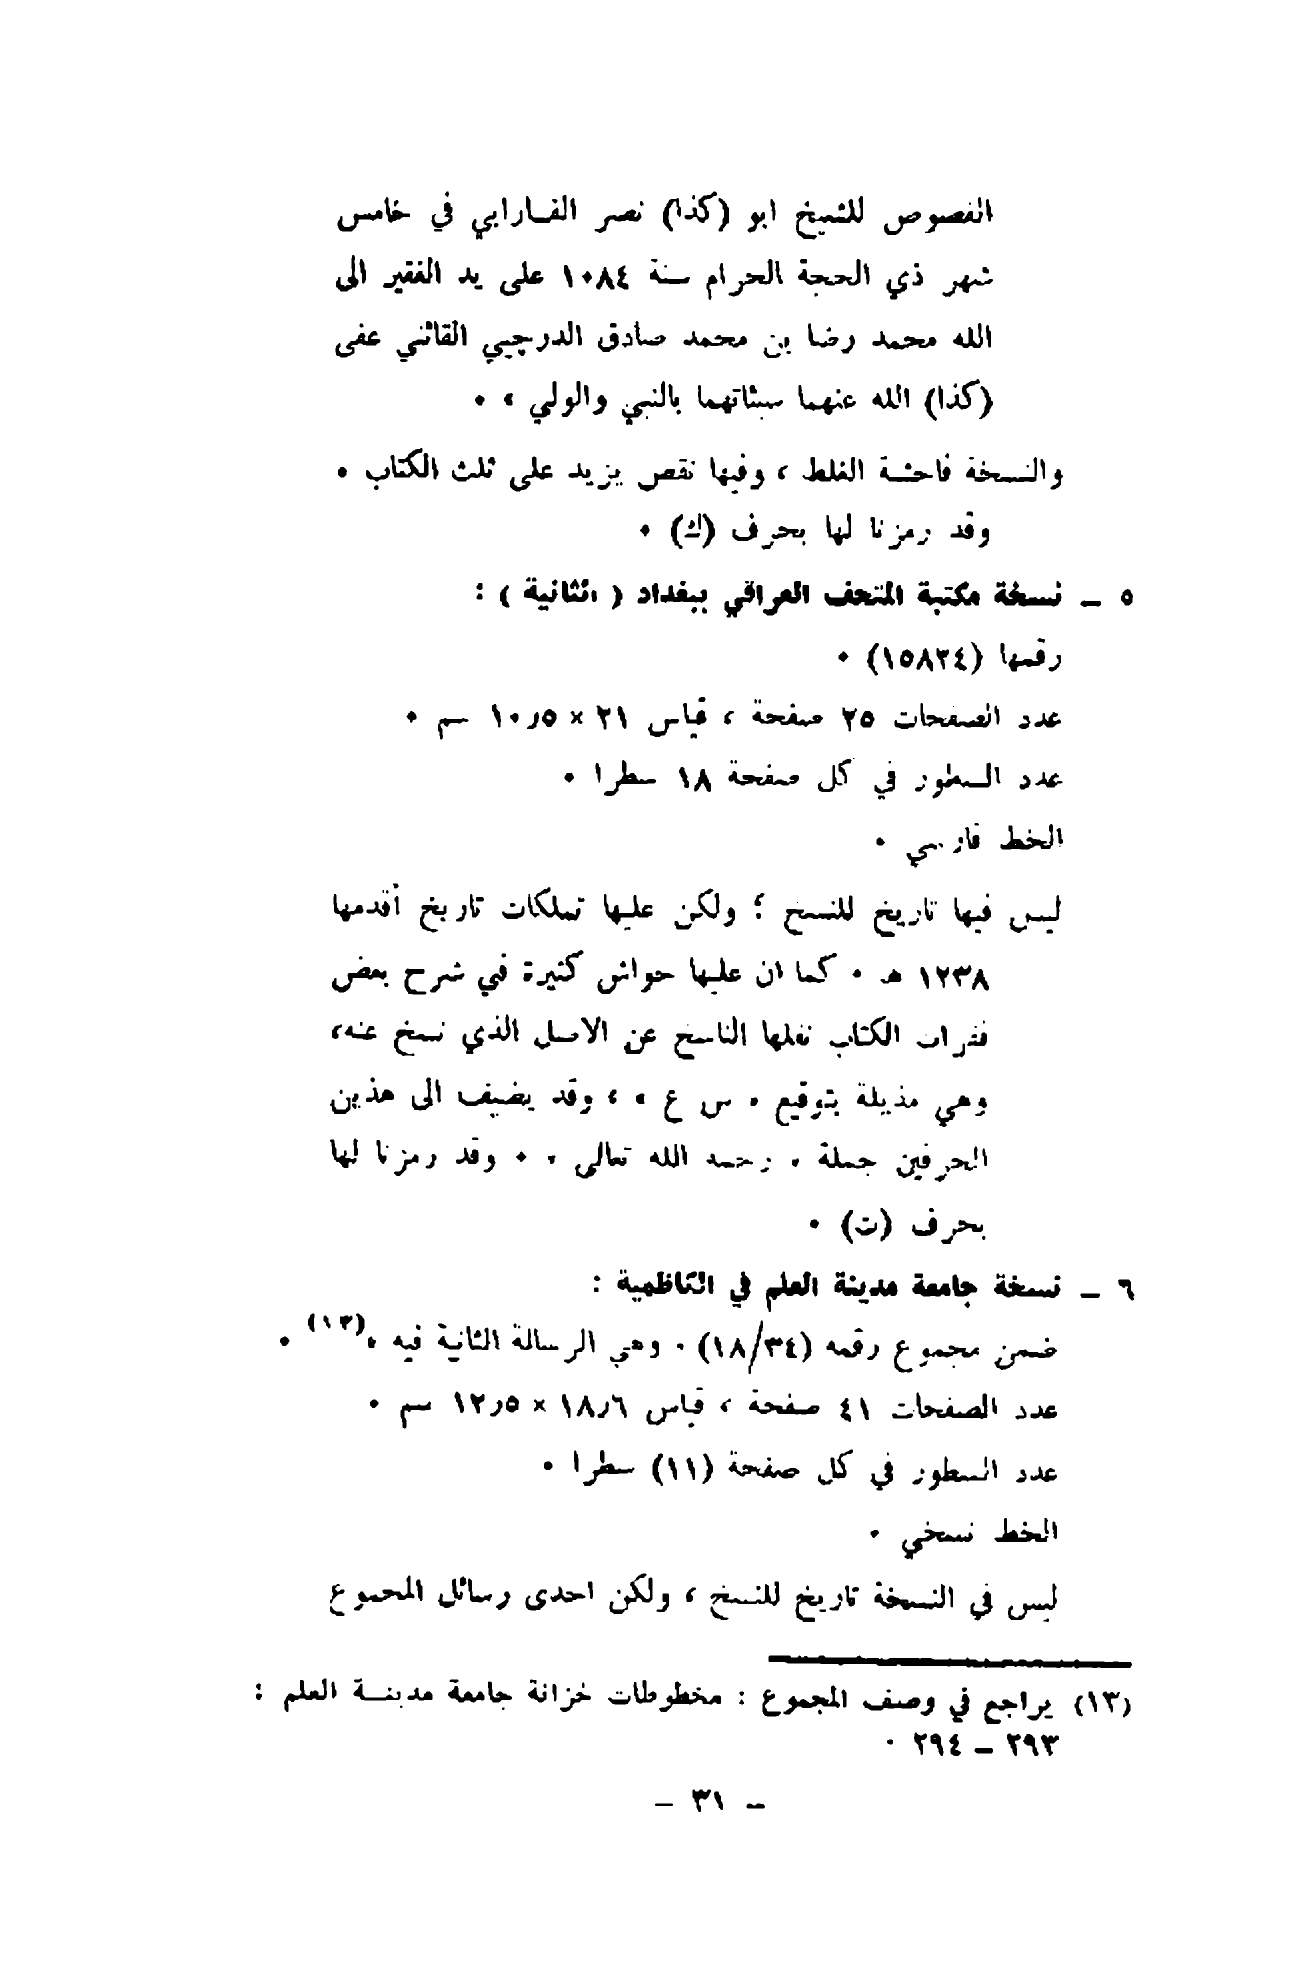 الفصوص للشيخ ابو (كذا) نصر الفارابي في خامس
شهر ذي الحجة الحرام سنة ١٠٨٤ على يد الفقير الى
الله محمد رضا بن محمد صادق الدرجيي القائني عفى
(كذا) الله عنهما سيئاتهما بالنبي والولي » ٠
والنسخة فاحشة الغلط ، وفيها نقص يزيد على ثلث الكتاب ٠
وقد رمزنا لها بحرف (ك) ٠
٥ ــ نسخة مكتبة المتحف العراقي ببغداد ( الثانية ) :
رقمها (١٥٨٢٤) ٠
عدد الصفحات ٢٥ صفحة ، قياس ٢١ × ١٠ر٥ سم ٠
عدد السطور في كل صفحة ١٨ سطرا ٠
الخط فارسي ٠
ليس فيها تاريخ للنسخ ؛ ولكن عليها تملكات تاريخ أقدمها
١٢٣٨ هـ ٠ كما ان عليها حواش كثيرة في شرح بعض
فقرات الكتاب نقلها الناسخ عن الاصل الذي نسخ عنه،
وهي مذيلة بتوقيع « س ع » ، وقد يضيف الى هذين
الحرفين جملة « رحمه الله تعالى » ٠ وقد رمزنا لها
بحرف (ت) ٠
٦ ــ نسخة جامعة مدينة العلم في الكاظمية :
ضمن مجموع رقمه (١٨/٣٤) ٠ وهي الرسالة الثانية فيه ٠(١٣) ٠
عدد الصفحات ٤١ صفحة ، قياس ١٨ر٦ × ١٢ر٥ سم ٠
عدد السطور في كل صفحة (١١) سطرا ٠
الخط نسخي ٠
ليس في النسخة تاريخ للنسخ ، ولكن احدى رسائل المجموع
(١٣) يراجع في وصف المجموع : مخطوطات خزانة جامعة مدينة العلم :
٢٩٣ ــ ٢٩٤ ٠
ــ ٣١ ــ